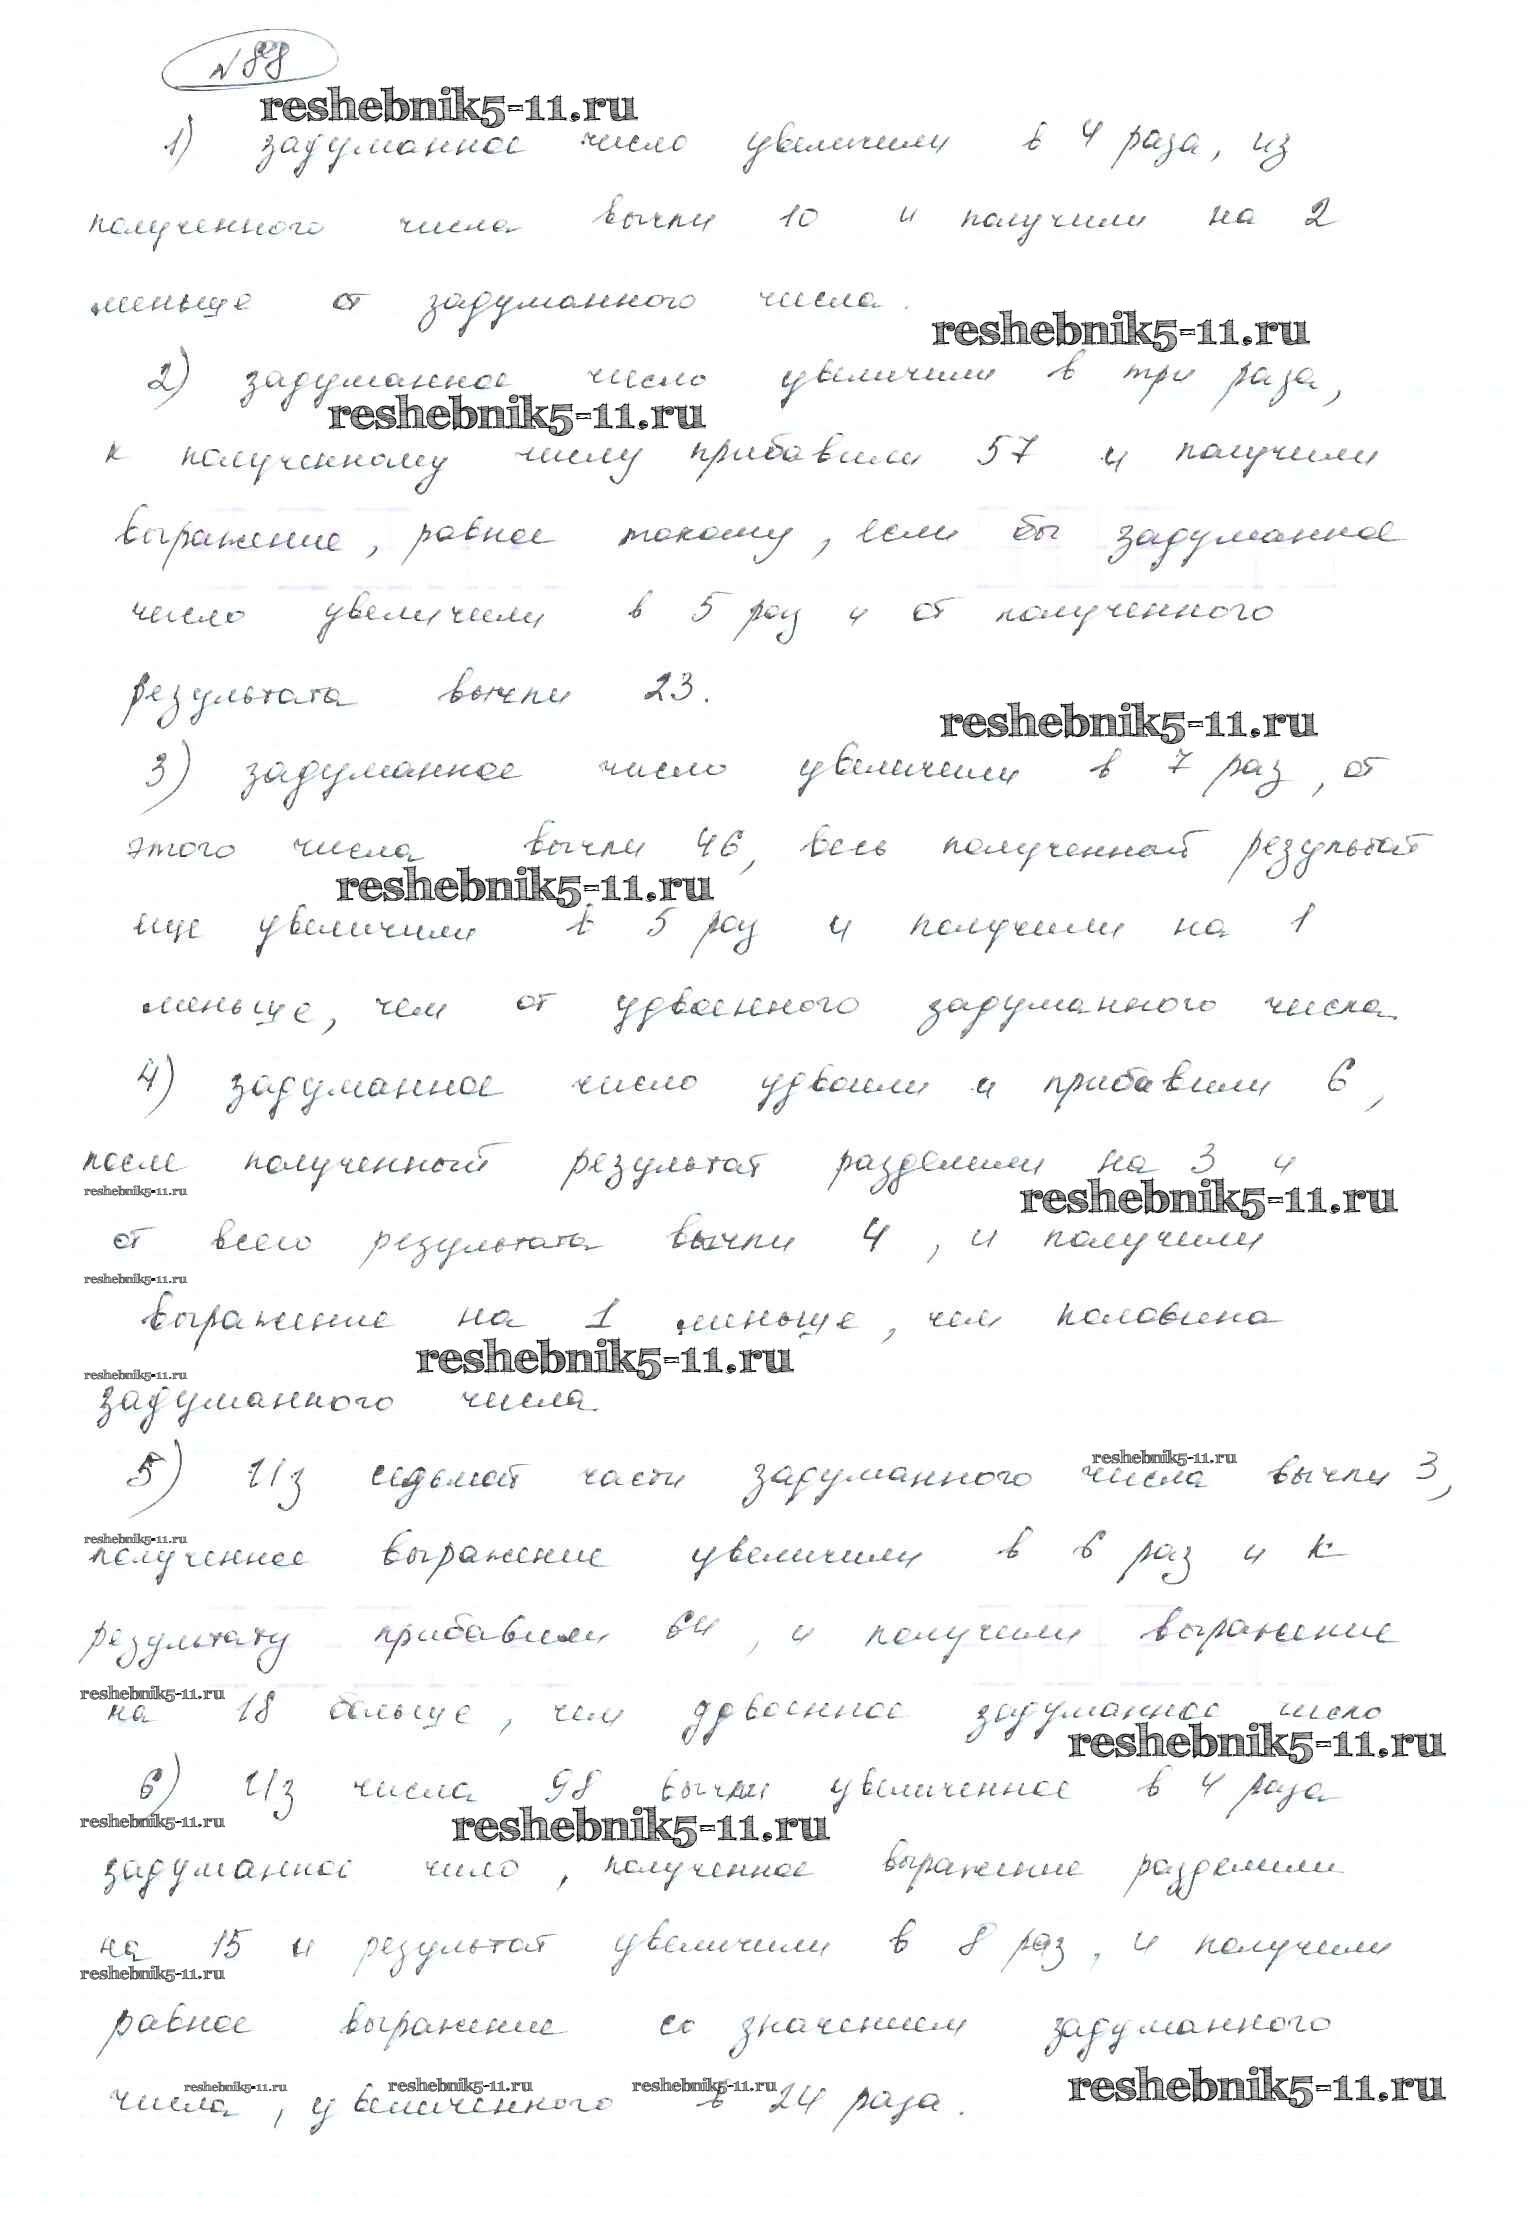 №88
reshebnik5-11.ru
1) задуманное число увеличили в 4 раза, из
полученного числа вычли 10 и получили на 2
меньше от задуманного числа.
reshebnik5-11.ru
2) задуманное число увеличили в три раза,
reshebnik5-11.ru
к полученному числу прибавили 57 и получили
выражение, равное такому, если бы задуманное
число увеличили в 5 раз и от полученного
результата вычли 23.
reshebnik5-11.ru
3) задуманное число увеличили в 7 раз, от
этого числа вычли 46, весь полученный результат
reshebnik5-11.ru
еще увеличили в 5 раз и получили на 1
меньше, чем от удвоенного задуманного числа
4) задуманное число удвоили и прибавили 6,
после полученный результат разделили на 3 и
reshebnik5-11.ru
reshebnik5-11.ru
от всего результата вычли 4, и получили
reshebnik5-11.ru
выражение на 1 меньше, чем половина
reshebnik5-11.ru
reshebnik5-11.ru
задуманного числа
5) Из седьмой части задуманного числа вычли 3,
reshebnik5-11.ru
reshebnik5-11.ru
полученное выражение увеличили в 6 раз и к
результату прибавили 64, и получили выражение
reshebnik5-11.ru
на 18 больше, чем удвоенное задуманное число
reshebnik5-11.ru
6) Из числа 98 вычли увеличенное в 4 раза
reshebnik5-11.ru
reshebnik5-11.ru
задуманное чило, полученное выражение разделили
на 15 и результат увеличили в 8 раз, и получили
reshebnik5-11.ru
равное выражение со значением задуманного
reshebnik5-11.ru reshebnik5-11.ru reshebnik5-11.ru reshebnik5-11.ru
числа, увеличенного в 24 раза.